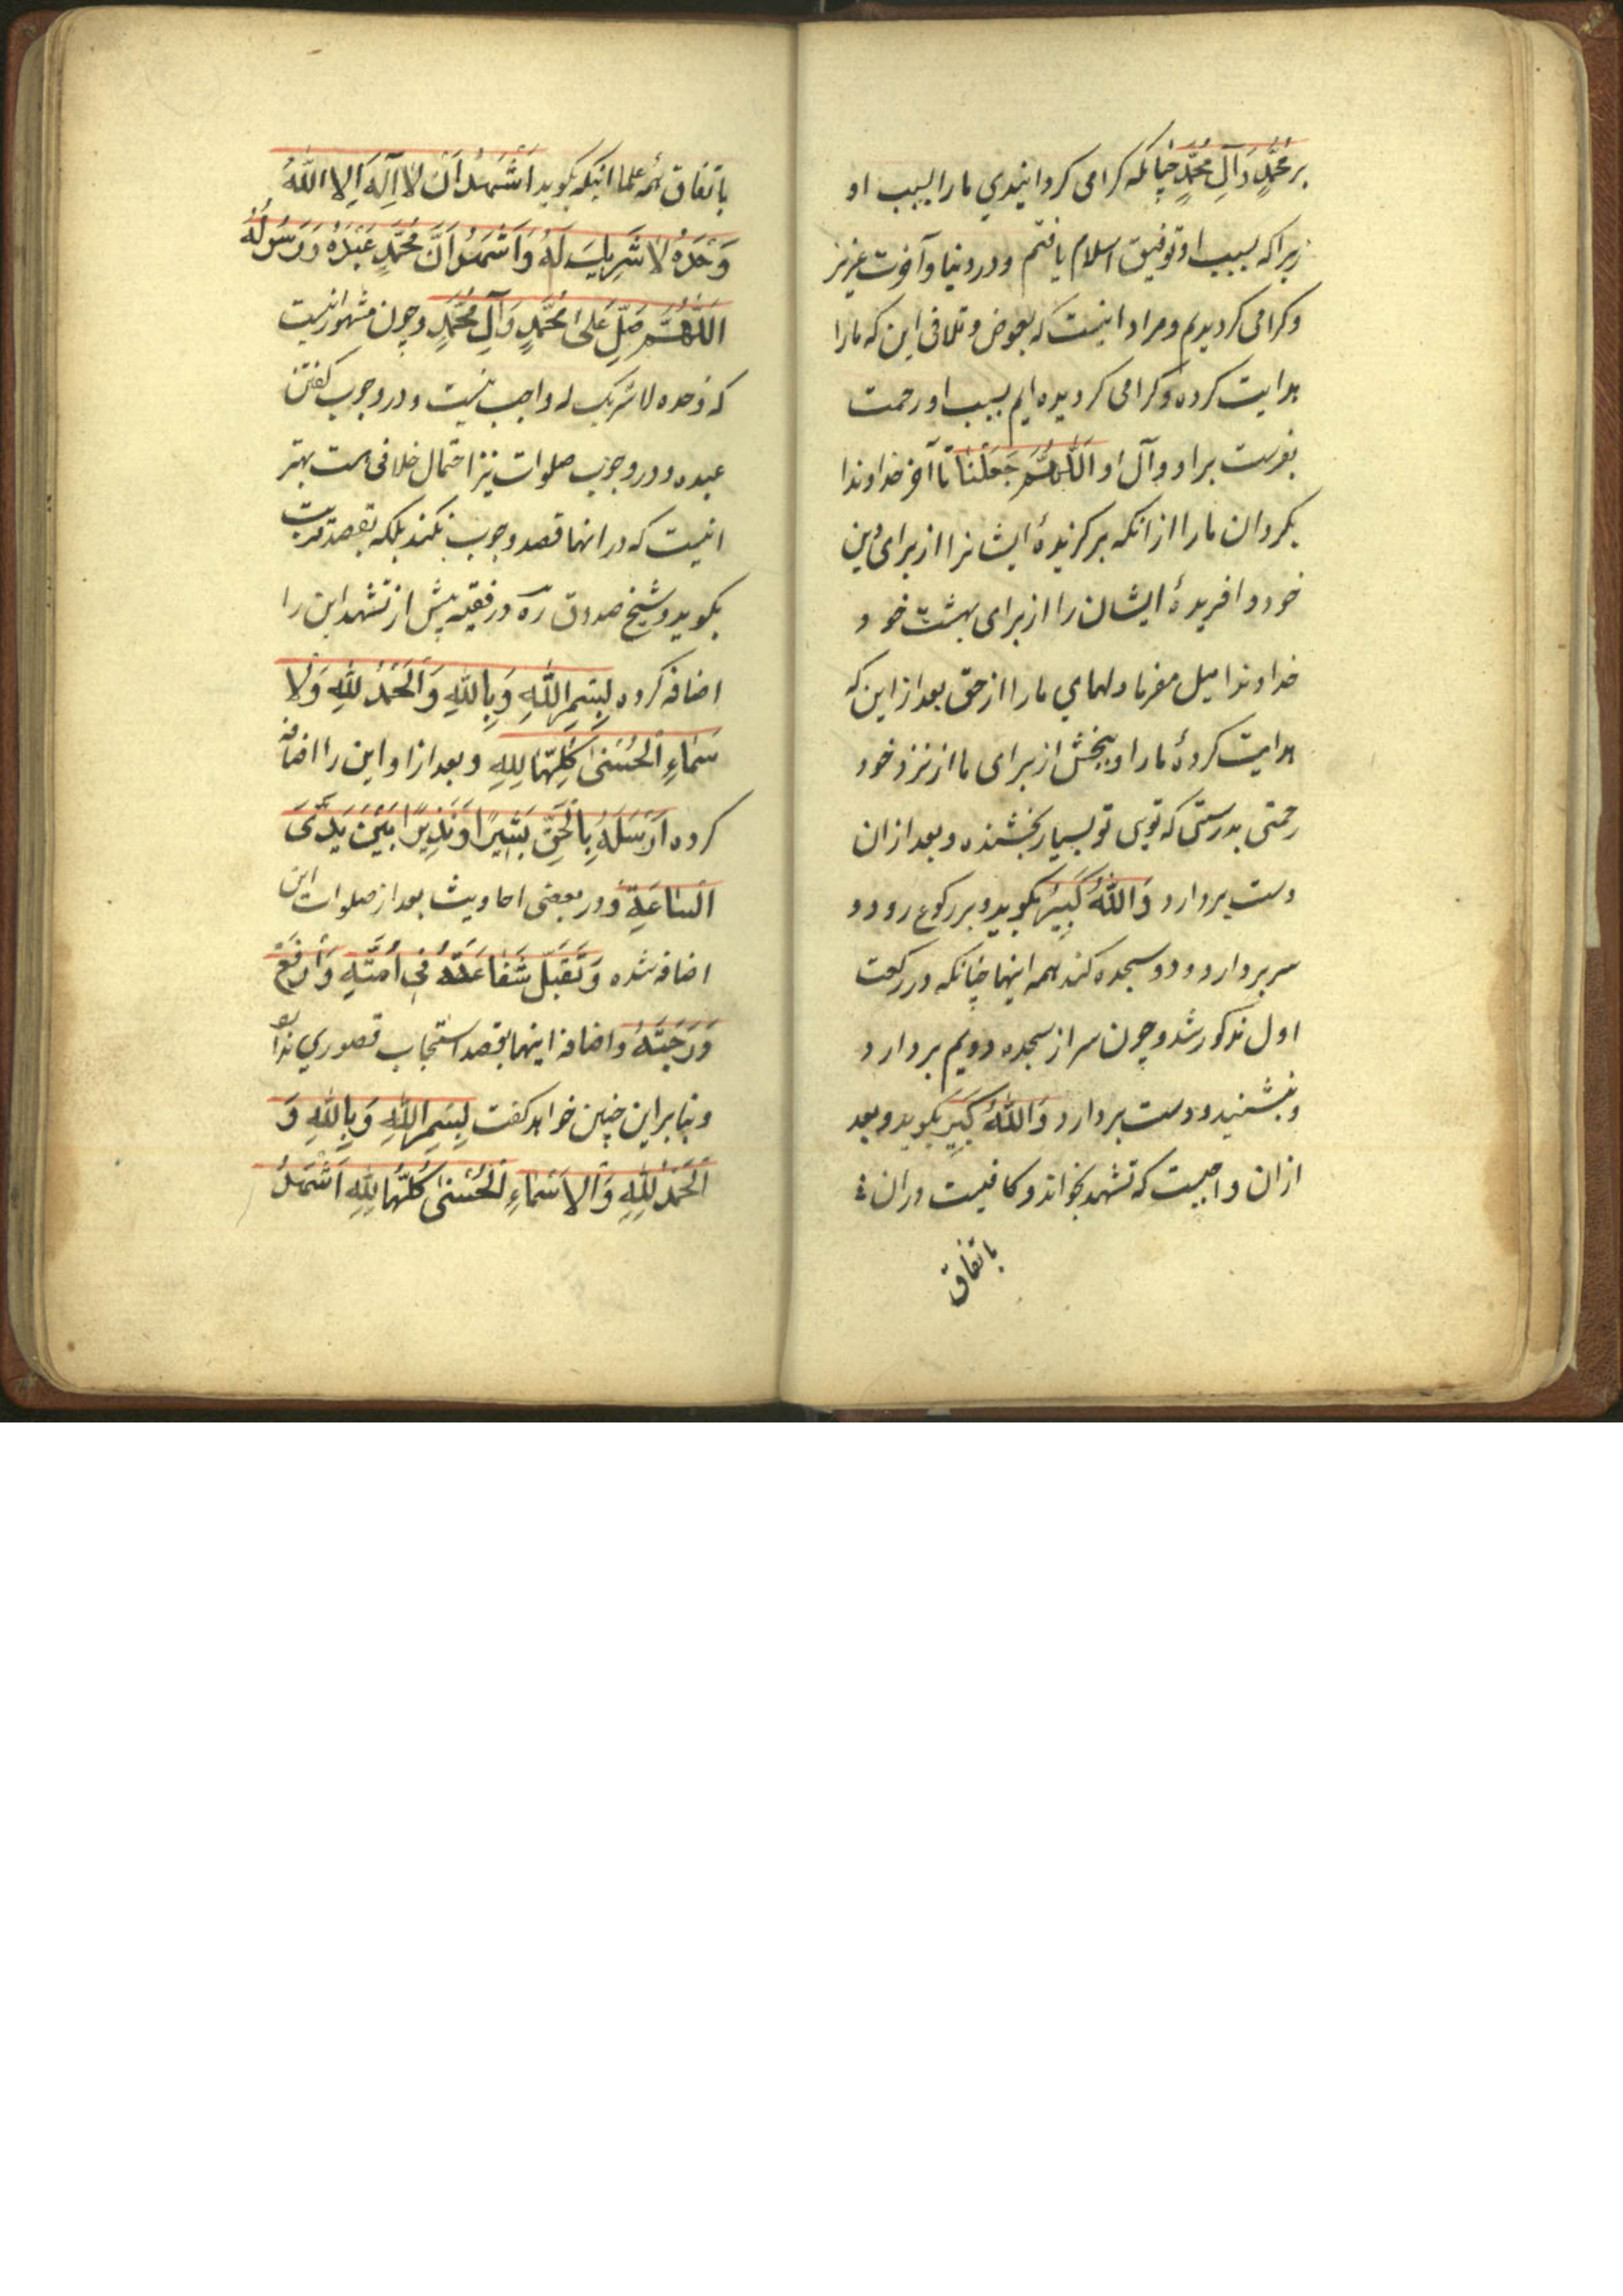 بر مُحَمَّدٍ وَ آلِ مُحَمَّدٍ چنانکه کرامی کردانیدي ما را بسبب او
زیرا که بسبب او توفیق اسلام یافتم و در دنیا و آخرت عزیز
و کرامی کردیدیم و مراد اینست که بعوض و تلافی این که ما را
هدایت کرده و کرامی کردیده ایم بسبب او رحمت
بفرست بر او و آل او اَللّٰهُمَّ جَعَلْنٰا تا آخر خداوندا
بکردان ما را از انکه برکزیدهٔ ایشانرا از برای دین
خود و افریدهٔ ایشان را از برای بهشت خود
خداوندا میل مفرما دلهاي ما را از حق بعد از این که
هدایت کردهٔ ما را و ببخش از برای ما از نزد خود
رحمتی بدرستی که تویی تو بسیار بخشنده و بعد از ان
دست بردارد وَ اللّٰهُ کَبِیَرُ بکوید و برکوع رود و
سر بردارد و دو سجده کند همه اینها چنانکه در رکعت
اول مذکور شد و چون سر از سجده دویم بردارد
و بنشنید و دست بردارد وَ اللّٰهُ کَبِیَر بکوید و بعد
از ان واجبست که تشهد بخواند و کافیست در ان
باتفاق
باتفاق همهٔ علما انیکه بکوید اَشْهَدُ اَنْ لاٰ اِلٰهَ اِلاَ اللّٰهُ
وَحْدَهُ لاٰ شَرِیٖكَ لَهُ وَ اَشْهَدُ اَنَّ مُحَمَّدٍ عَبْدَهُ وَ رَسُولُهُ
اَللّٰهُمَّ صَلِّ عَلیٰ مُحَمَّدٍ وَ آلِ مُحَمَّدٍ و چون مشهور انیست
که وحده لا شریک له واجب نیست و در وجوب کفتن
عبده و در وجوب صلوات نیز احتمال خلافی هست بهتر
انیست که در انها قصد وجوب نکند بلکه بقصد قربت
بکوید و شیخ صدوق ره در فقیه پیش از تشهد این را
اضافه کرده بِسْمِ اللّٰهِ وَ بِاللّٰهِ وَ الْحَمْدُ لِلّٰهِ وَ لْا
سَمٰاءِ الْحُسْنیٰ کُلِّهٰا لِلّٰهِ و بعد از او این را اضافه
کرده اَرْسَلَهُ بِالْحَقِّ بَشٖیرًا وَ نَذٖیرًا بَیْنَ یَدَیَ
السّٰاعَةِ و در بعضی احادیث بعد از صلوات این
اضافه شده وَ تَقَبَّلْ شَفٰاعَتَهُ فٖی اُمَّتِهِ وَ ارْفَعْ
دَرَجَتَهُ و اضافه اینها بقصد استحباب قصوري ندارد
و بنابر این چنین خواهد کفت بِسْمِ اللّٰهِ وَ بِاللّٰهِ وَ
اَلْحَمْدُ لِلّٰهِ وَ الاَسْمٰاءِ الْحُسْنیٰ کُلُّهٰا لِلّٰهِ اَشْهَدُ